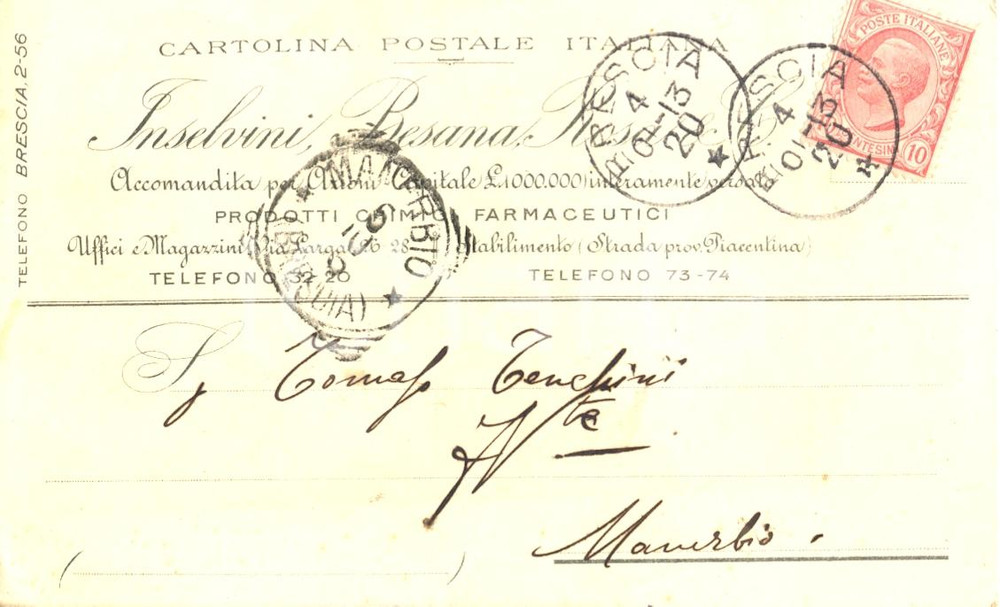 CARTOLINA POSTALE ITALIANA
POSTE ITALIANE
10
TELEFONO BRESCIA, 2-56
BRESCIA
4
10-13
20
BRESCIA
4
10-13
20
Inselvini, Besana,
Accomandita per Azioni Capitale £.1000.000 interamente versato
PRODOTTI CHIMICI FARMACEUTICI
Uffici e Magazzini (Via Larga, 26 28) Stabilimento (Strada prov. Piacentina)
TELEFONO 32 20 TELEFONO 73-74
MANERBIO
(BRESCIA)
Sg Tomaso Tenchini
Manerbio.